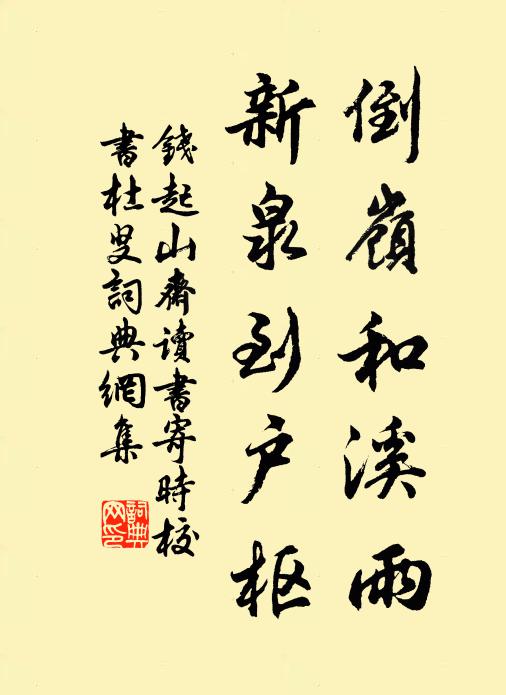 倒嶺和溪雨
新泉到户枢
錢起山齋讀書寄時校
書杜叟詞典網集
詞典
网印